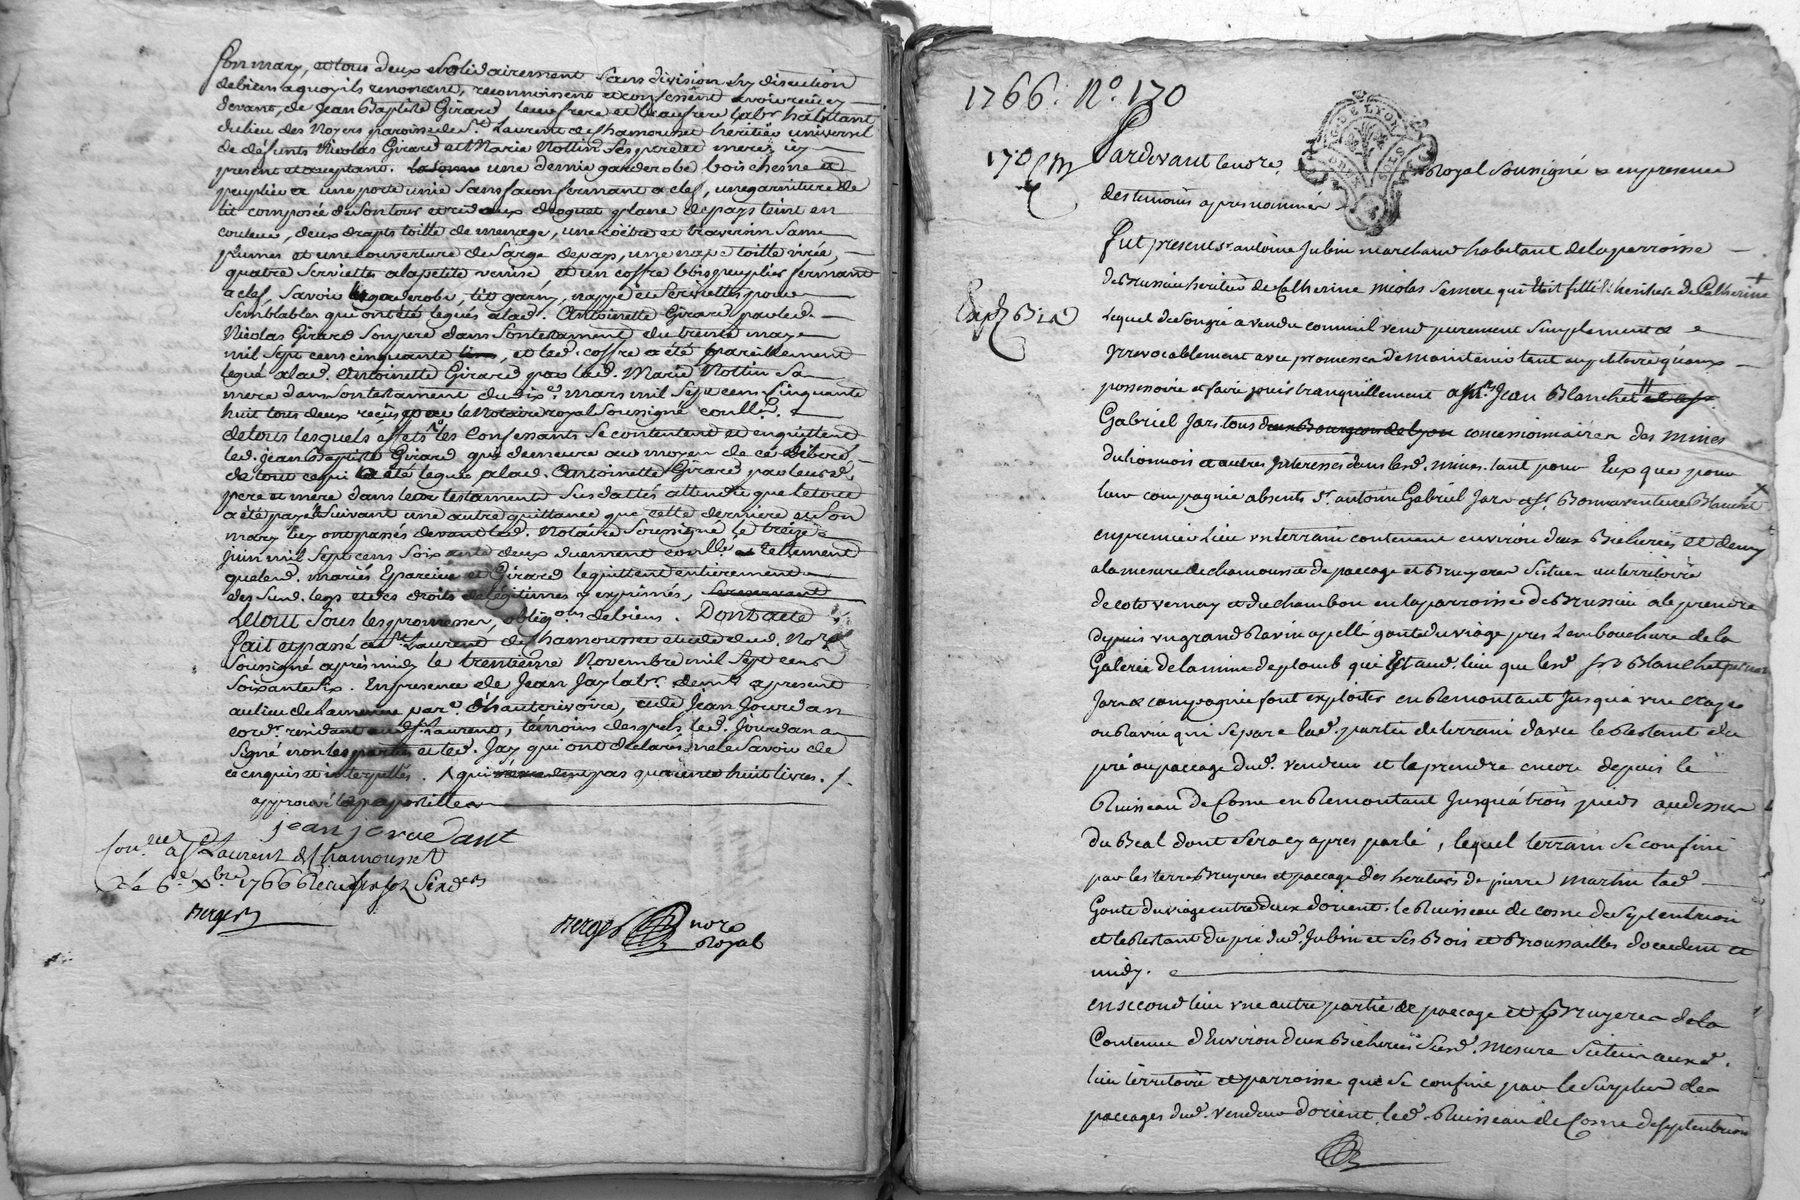 son mary, et tous deux solidairement sans division ny discution
de biens a quoy ils renoncent, reconnoissent et confessent avoir reçu cy
devant, de Jean Baptiste Girard leur frere et beaufrere labr. habitant
du lieu des Noyers paroisse de St. Laurent de Chamousset heritier universel
de défunts Nicolas Girard et Marie Nottin ses pere et mere, icy
present et acceptant. une demie garderobe bois chesne et
peuplier a une porte unie sans façon fermant a clef, une garniture de
lit composée de son tour et rideaux droguet plane de pays teint en
couleur, deux drapts toille de menage, une coëtre et traversin sans
plumes et une couverture de sarge de pays, une nape toille virée,
quatre serviettes a la petite venise, et un coffre bois peuplier fermant
a clef, Savoir la garderobe, lit garny, nappe et serviettes pour
semblables que ont été legués a lad. Antoinette Girard par led.
Nicolas Girard son pere dans son testament du trente may
mil sept cens cinquante , et led. coffre a été pareillement
legué a lad. Antoinette Girard par lad. Marie Nottin sa
mere dans son testament du dix mars mil sept cens cinquante
huit tous deux reçus par le Notaire royal soussigné coullés.
de tous lesquels effets les confessants se contentent et en quittent
led. jean Baptiste Girard qui demeure au moyen de ce liberé
de tout ce qui a été legué a lad. Antoinette Girard par leursd.
pere et mere dans leur testaments susdattés attendu que le tout
a été payé suivant une autre quittance que cette derniere et son
mary luy ont passés devant led. Notaire soussigné le treize
juin mil sept cens soixante deux duement coullé tellement
que lesd. mariés Eparcieu et Girard le quittent entierement
des susd. legs et des droits de legitimes y exprimés,
Le tout sous les promesses, obligons. de biens. Dont acte
fait et passé a St. Laurent de Chamousset etude dud. Nore.
soussigné après midy le trentieme Novembre mil sept cens
soixante six. En presence de Jean Jay labr. demt. a present
au lieu de parr. d'hauterivoire, et de Jean Jourdan
cordr. residant aud. St. Laurent, temoins desquels led. Jourdan a
signé non les parties et led. Jay qui ont declarés ne le savoir de
ce enquis et interpellés. qui pas quarente huit livres.
approuvé la apostille
jean jourdant
Conllé a St. Laurent de Chamousset
le 6e. xbre 1766 Reçu
Berger
Berger nore.
Royal
1766. No. 170
170
Pardevant le nore. Royal soussigné en presence
des temoins apres nommés
fut present sr. antoine Jubin marchand habitant de la parroisse
de Brussieu heritier de Catherine nicolas sa mere qui étoit fille et heritiere de Catherine
Exped.
Lequel de son gré a vendu comm'il vend purement simplement et
Yrrevocablement avec promesse de maintenir tant au petitoire qu'aux
possessoire et faire jouir tranquillement a Jean Blanchet
Gabriel Jars tous deux Bourgeois de Lyon concessionnaires des mines
du lionnois et autres Interessés dans lesd. mines, tant pour Eux que pour
leur compagnie absents sr. antoine Gabriel Jars Bonnaventure Blanchet
en premier Lieu un terrain contenant environ deux Bicherées et demy
a la mesure de chamousset de paccage et Bruyeres situés au territoire
de cote vernay et du chambon en la parroisse de Brussieu a le prendre
depuis un grand Ravin apellé goute du viage pres L'embouchure de la
Galerie de la mine de plomb qui Est aud. lieu que lesd. srs Blanchet
Jars & compagnie font exploiter en Remontant Jusqu'a
ou Ravin qui separe lad. partie de terrain d'avec le Restant du
pré ou paccage dud. vendeur et la prendre encore depuis le
Ruisseau de Cosne en Remontant Jusqu'a trois pieds au dessus
du Beal dont sera cy apres parlé, lequel terrain se confine
par les terres Bruyeres et paccage des heritiers de pierre martin lad.
Goute du viage entre deux d'orient, le Ruisseau de cosne de Septentrion
et le Restant du pré dud. Jubin et ses Bois et Broussailles d'occident et
midy.
en second lieu une autre partie de paccage et Bruyeres de la
Contenue d'Environ deux Bicherées susd. mesure situées auxd.
lieu territoire et parroisse que se confine par le surplus des
paccages dud. vendeur d'orient, led. Ruisseau de Cosne de Septentrion